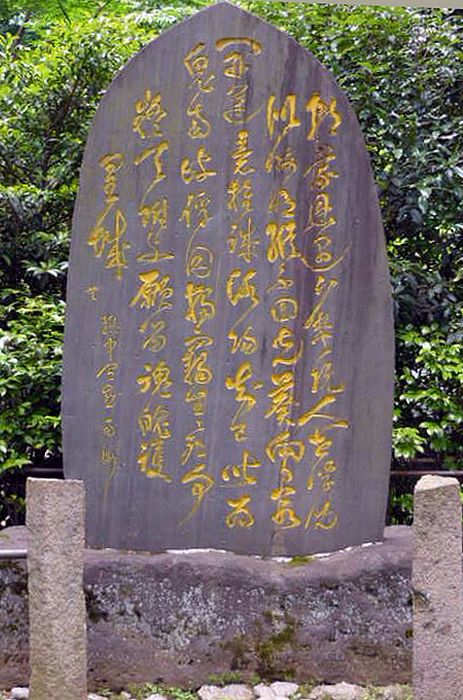 朝蒙恩遇夕焚坑人世浮沈
似晦明縦不回光葵向日若
無開運意推誠洛陽知己皆為
鬼南嶼俘囚独竊生生死何
疑天附与願留魂魄護
皇城
獄中有感南洲